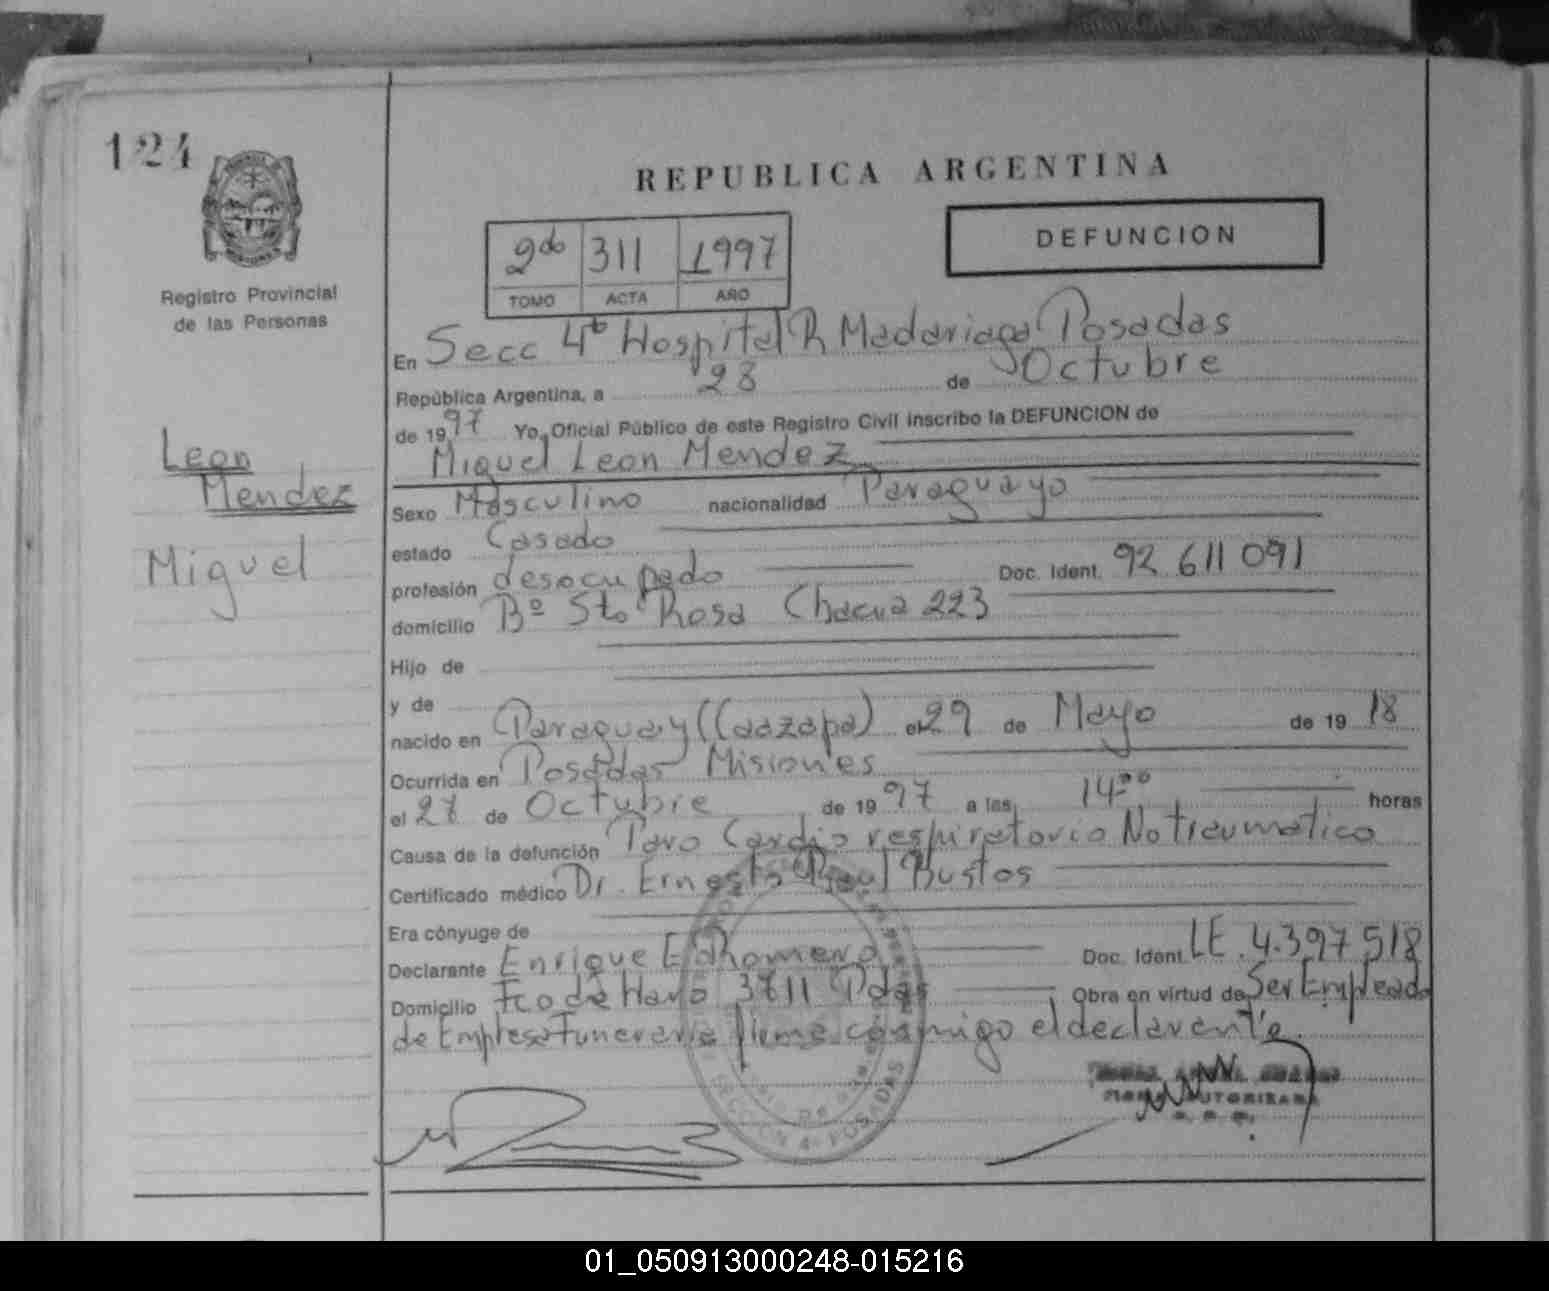 124
REPUBLICA ARGENTINA
2do 311 1997
TOMO ACTA AÑO
DEFUNCION
Registro Provincial
de las Personas
En Secc 4ta Hospital R Madariaga Posadas
República Argentina, a 28 de Octubre
de 1997 Yo, Oficial Público de este Registro Civil inscribo la DEFUNCION de
Leon
Mendez
Miguel
Miguel Leon Mendez
Sexo Masculino nacionalidad Paraguayo
estado Casado
profesión desocupado Doc. Ident. 92 611 091
domicilio Bº Sta Rosa Chacra 223
Hijo de
y de
nacido en Paraguay (Caazapa) el 29 de Mayo de 1918
Ocurrida en Posadas Misiones
el 27 de Octubre de 1997 a las 14-00 horas
Causa de la defunción Paro Cardio respiratorio No traumatico
Certificado médico Dr. Ernesto Raul Bustos
Era cónyuge de
Declarante Enrique Doc. Ident. LE. 4.397 518
Domicilio Fco de Haro 3711 Pdas Obra en virtud de Ser Empleado
de Empresa Funeraria firma conmigo el declarante.
FIRMA AUTORIZADA
SECCION 4ª POSADAS
01_050913000248-015216